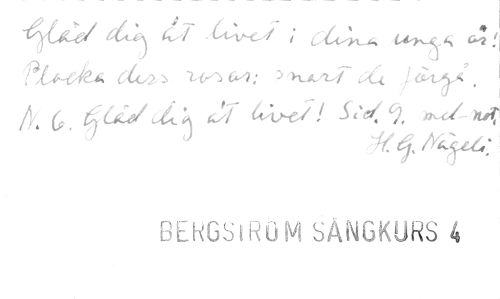 Gläd dig åt livet i dina unga år!
Plocka dess rosor: snart de förgå.
N. 6. Gläd dig åt livet! Sid. 9. mel-not.
H. G. Nägeli.
BERGSTRÖM SÅNGKURS 4